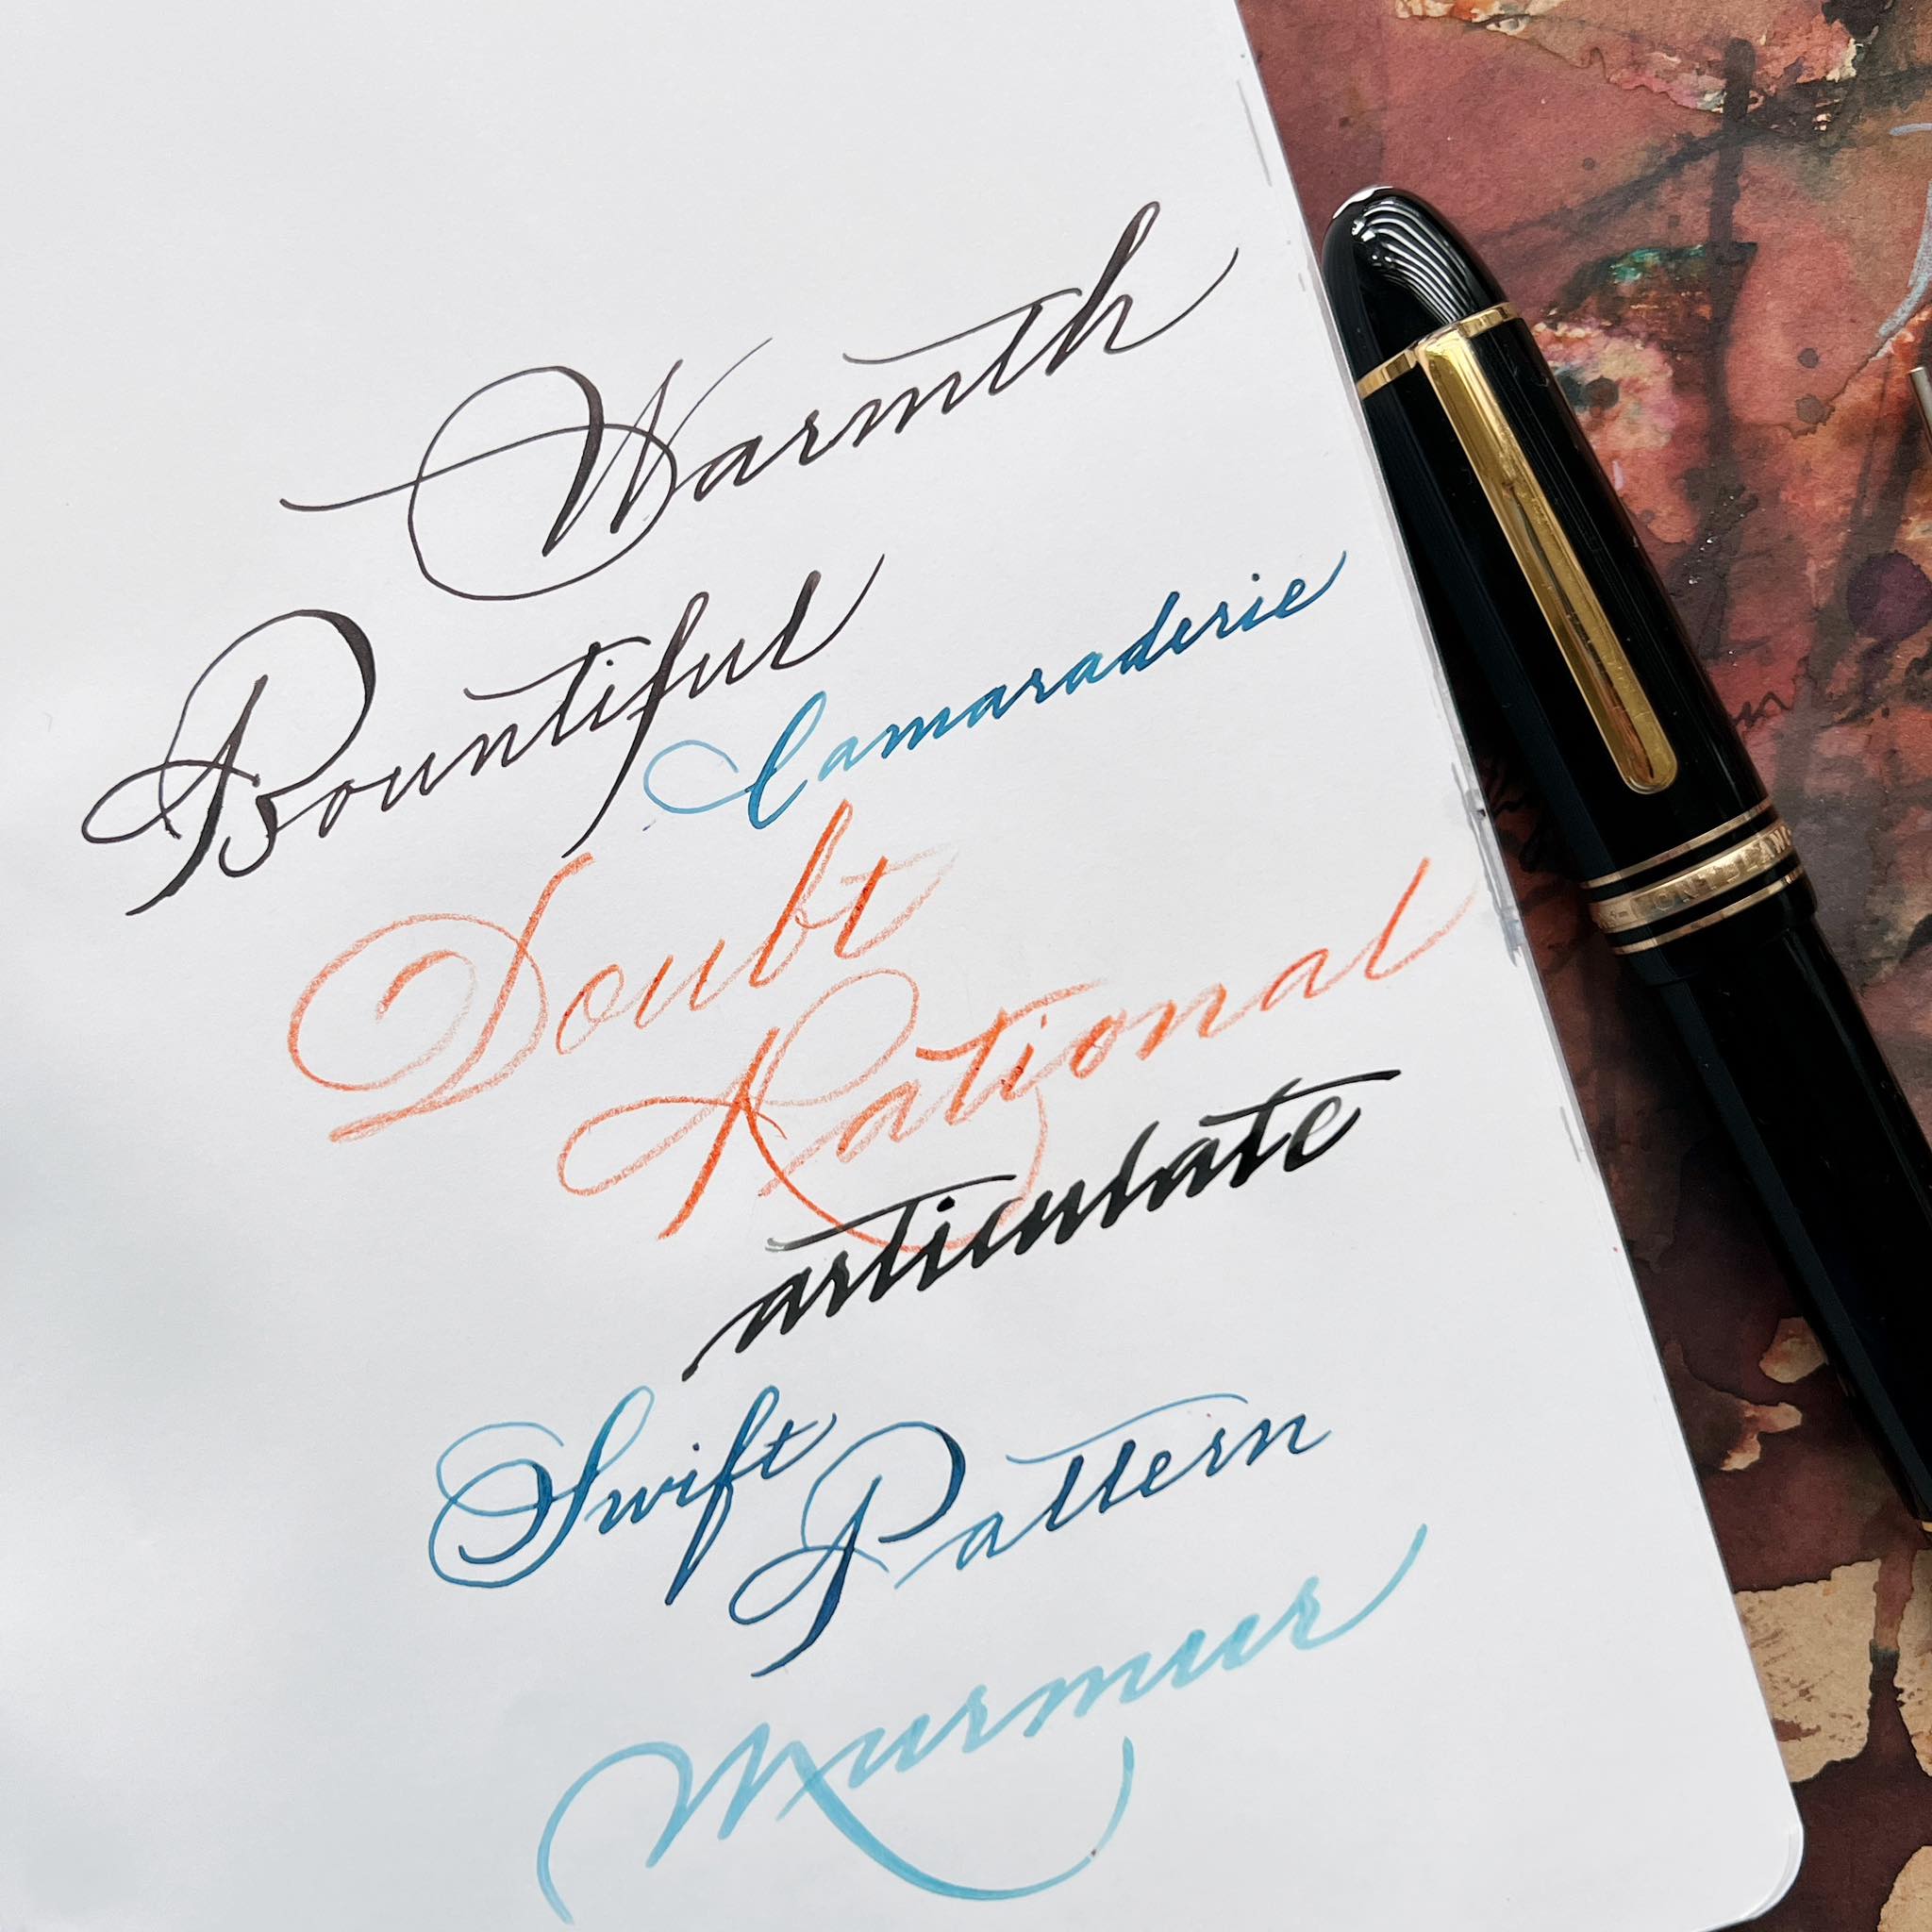 Warmth
Bountiful
Camaraderie
Doubt
Rational
articulate
Swift
Pattern
Murmur